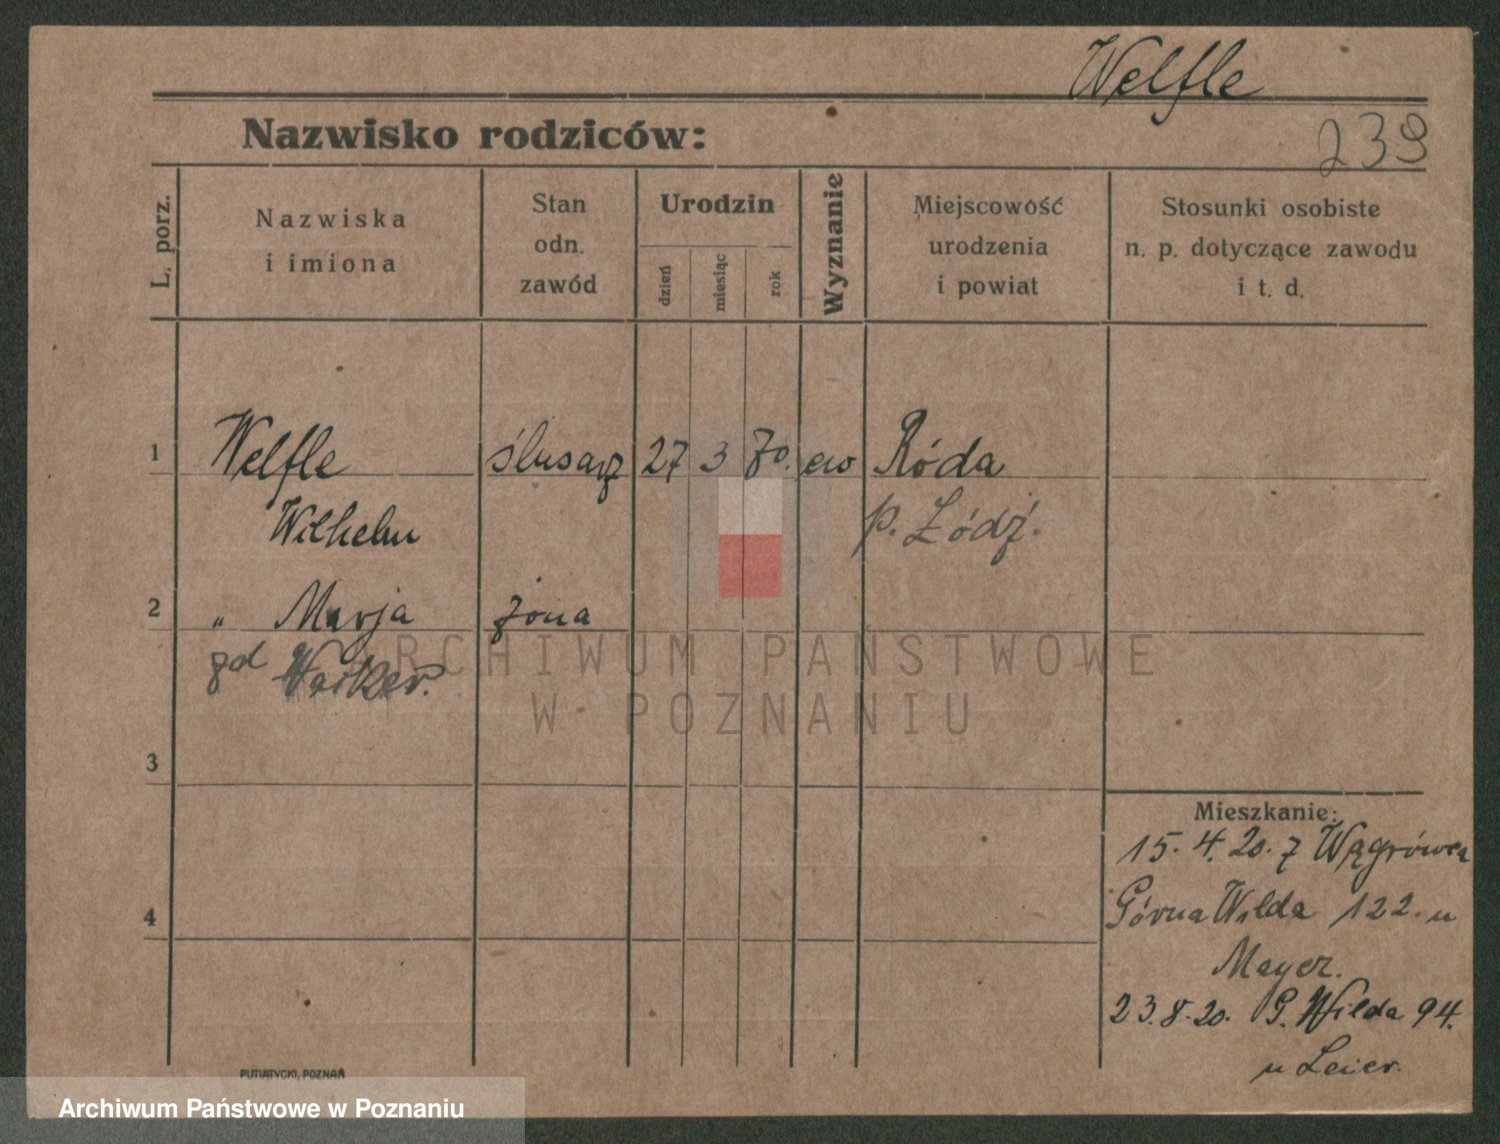 Welfle
Nazwisko rodziców:
239
L. porz.
Nazwiska
i imiona
Stan
odn.
zawód
Urodzin
dzień
miesiąc
rok
Wyznanie
Miejscowość
urodzenia
i powiat
Stosunki osobiste
n. p. dotyczące zawodu
i t. d.
1 Welfle ślusarz 27 3 70. ew Róda
Wilhelm p. Łódź.
2 " Marja żona
gd
3
Mieszkanie:
15. 4. 20. z Wągrówca
4
Górna Wilda 122. u
Mayer.
23.8.20. G. Wilda 94.
u Leier.
PUTIATYCKI, POZNAŃ
ARCHIWUM PAŃSTWOWE
W POZNANIU
Archiwum Państwowe w Poznaniu